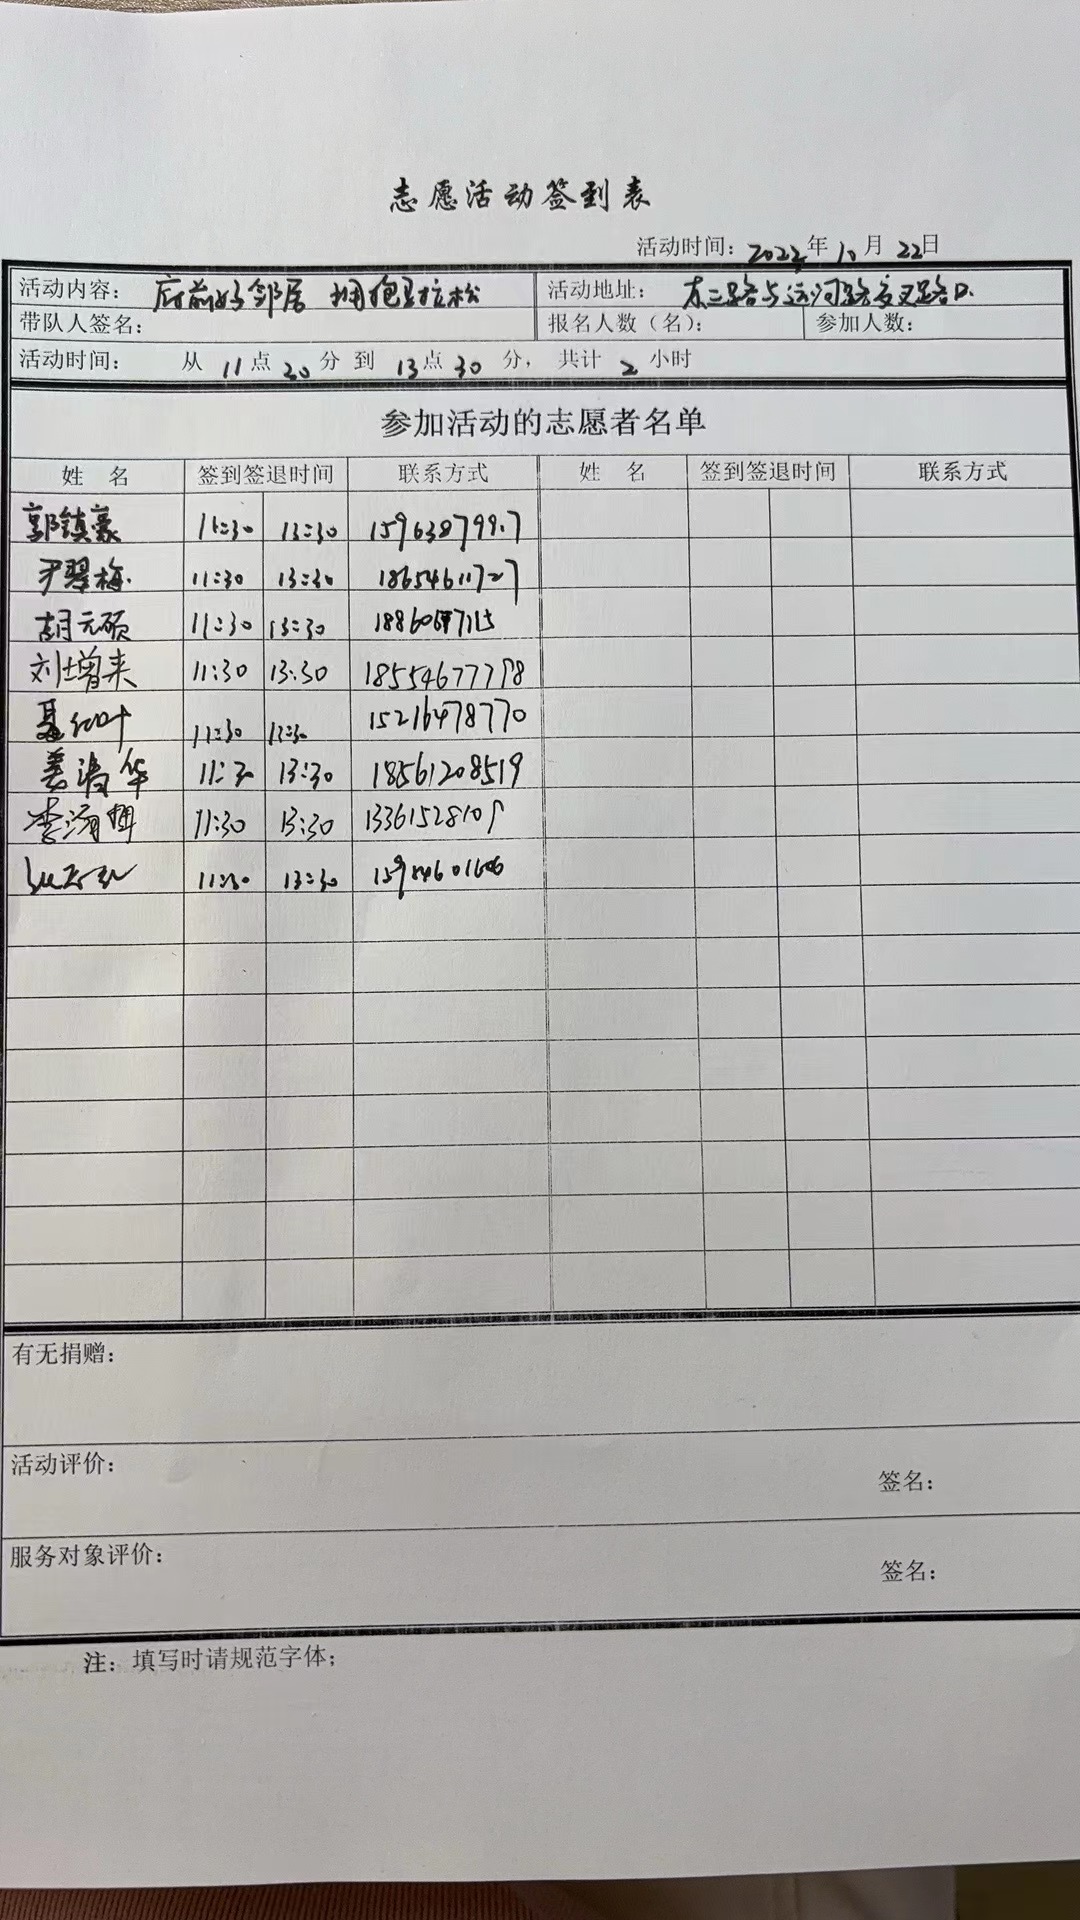 志愿活动签到表
活动时间：2022年10月22日
活动内容：府前好邻居 拥抱马拉松 活动地址：东三路与运河路交叉路口.
带队人签名： 报名人数（名）： 参加人数：
活动时间： 从 11点 20分 到 13点 30分， 共计 2小时
参加活动的志愿者名单
姓 名 签到签退时间 联系方式 姓 名 签到签退时间 联系方式
郭镇豪 11:30 13:30
尹翠梅 11:30 13:30 18654611727
胡元硕 11:30 13:30
刘增来 11:30 13:30 18554677798
聂红叶 11:30 13:30 15216478770
姜清华 11:30 13:30 18561208519
李海卿 11:30 13:30 13361528109
11:30 13:30
有无捐赠：
活动评价：
签名：
服务对象评价：
签名：
注：填写时请规范字体；